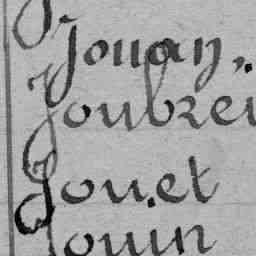 Jouan,
Joubrei
Jouet
Jouin